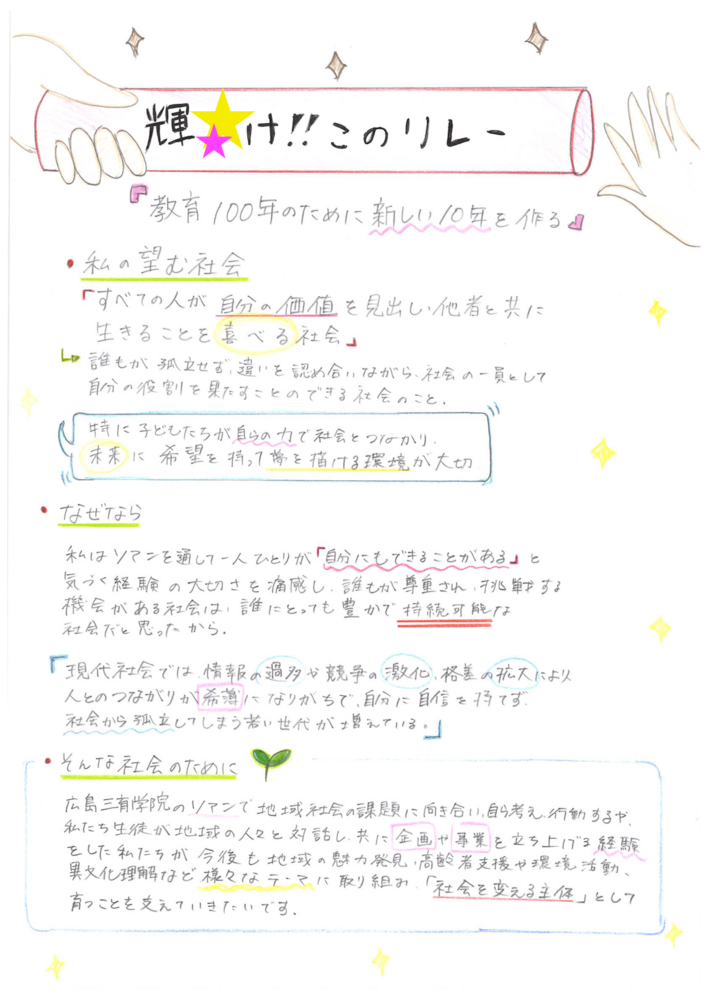 輝け!!このリレー
『教育100年のために新しい10年を作る』
・私の望む社会
「すべての人が自分の価値を見出し、他者と共に
生きることを喜べる社会」
誰もが孤立せず、違いを認め合いながら、社会の一員として
自分の役割を果たすことのできる社会のこと。
特に子どもたちが自らの力で社会とつながり、
未来に希望を持って夢を描ける環境が大切
・なぜなら
私はソアンを通して一人ひとりが「自分にもできることがある」と
気づく経験の大切さを痛感し、誰もが尊重され、挑戦する
機会がある社会は、誰にとっても豊かで持続可能な
社会だと思ったから。
「現代社会では、情報の過多や競争の激化、格差の拡大により
人とのつながりが希薄になりがちで、自分に自信を持てず、
社会から孤立してしまう若い世代が増えている。」
・そんな社会のために
広島三育学院のソアンで地域社会の課題に向き合い、自ら考え、行動する力や、
私たち生徒が地域の人々と対話し、共に企画や事業を立ち上げる経験
をした私たちが今後も地域の魅力発見、高齢者支援や環境活動、
異文化理解など様々なテーマに取り組み、「社会を変える主体」として
育つことを支えていきたいです。